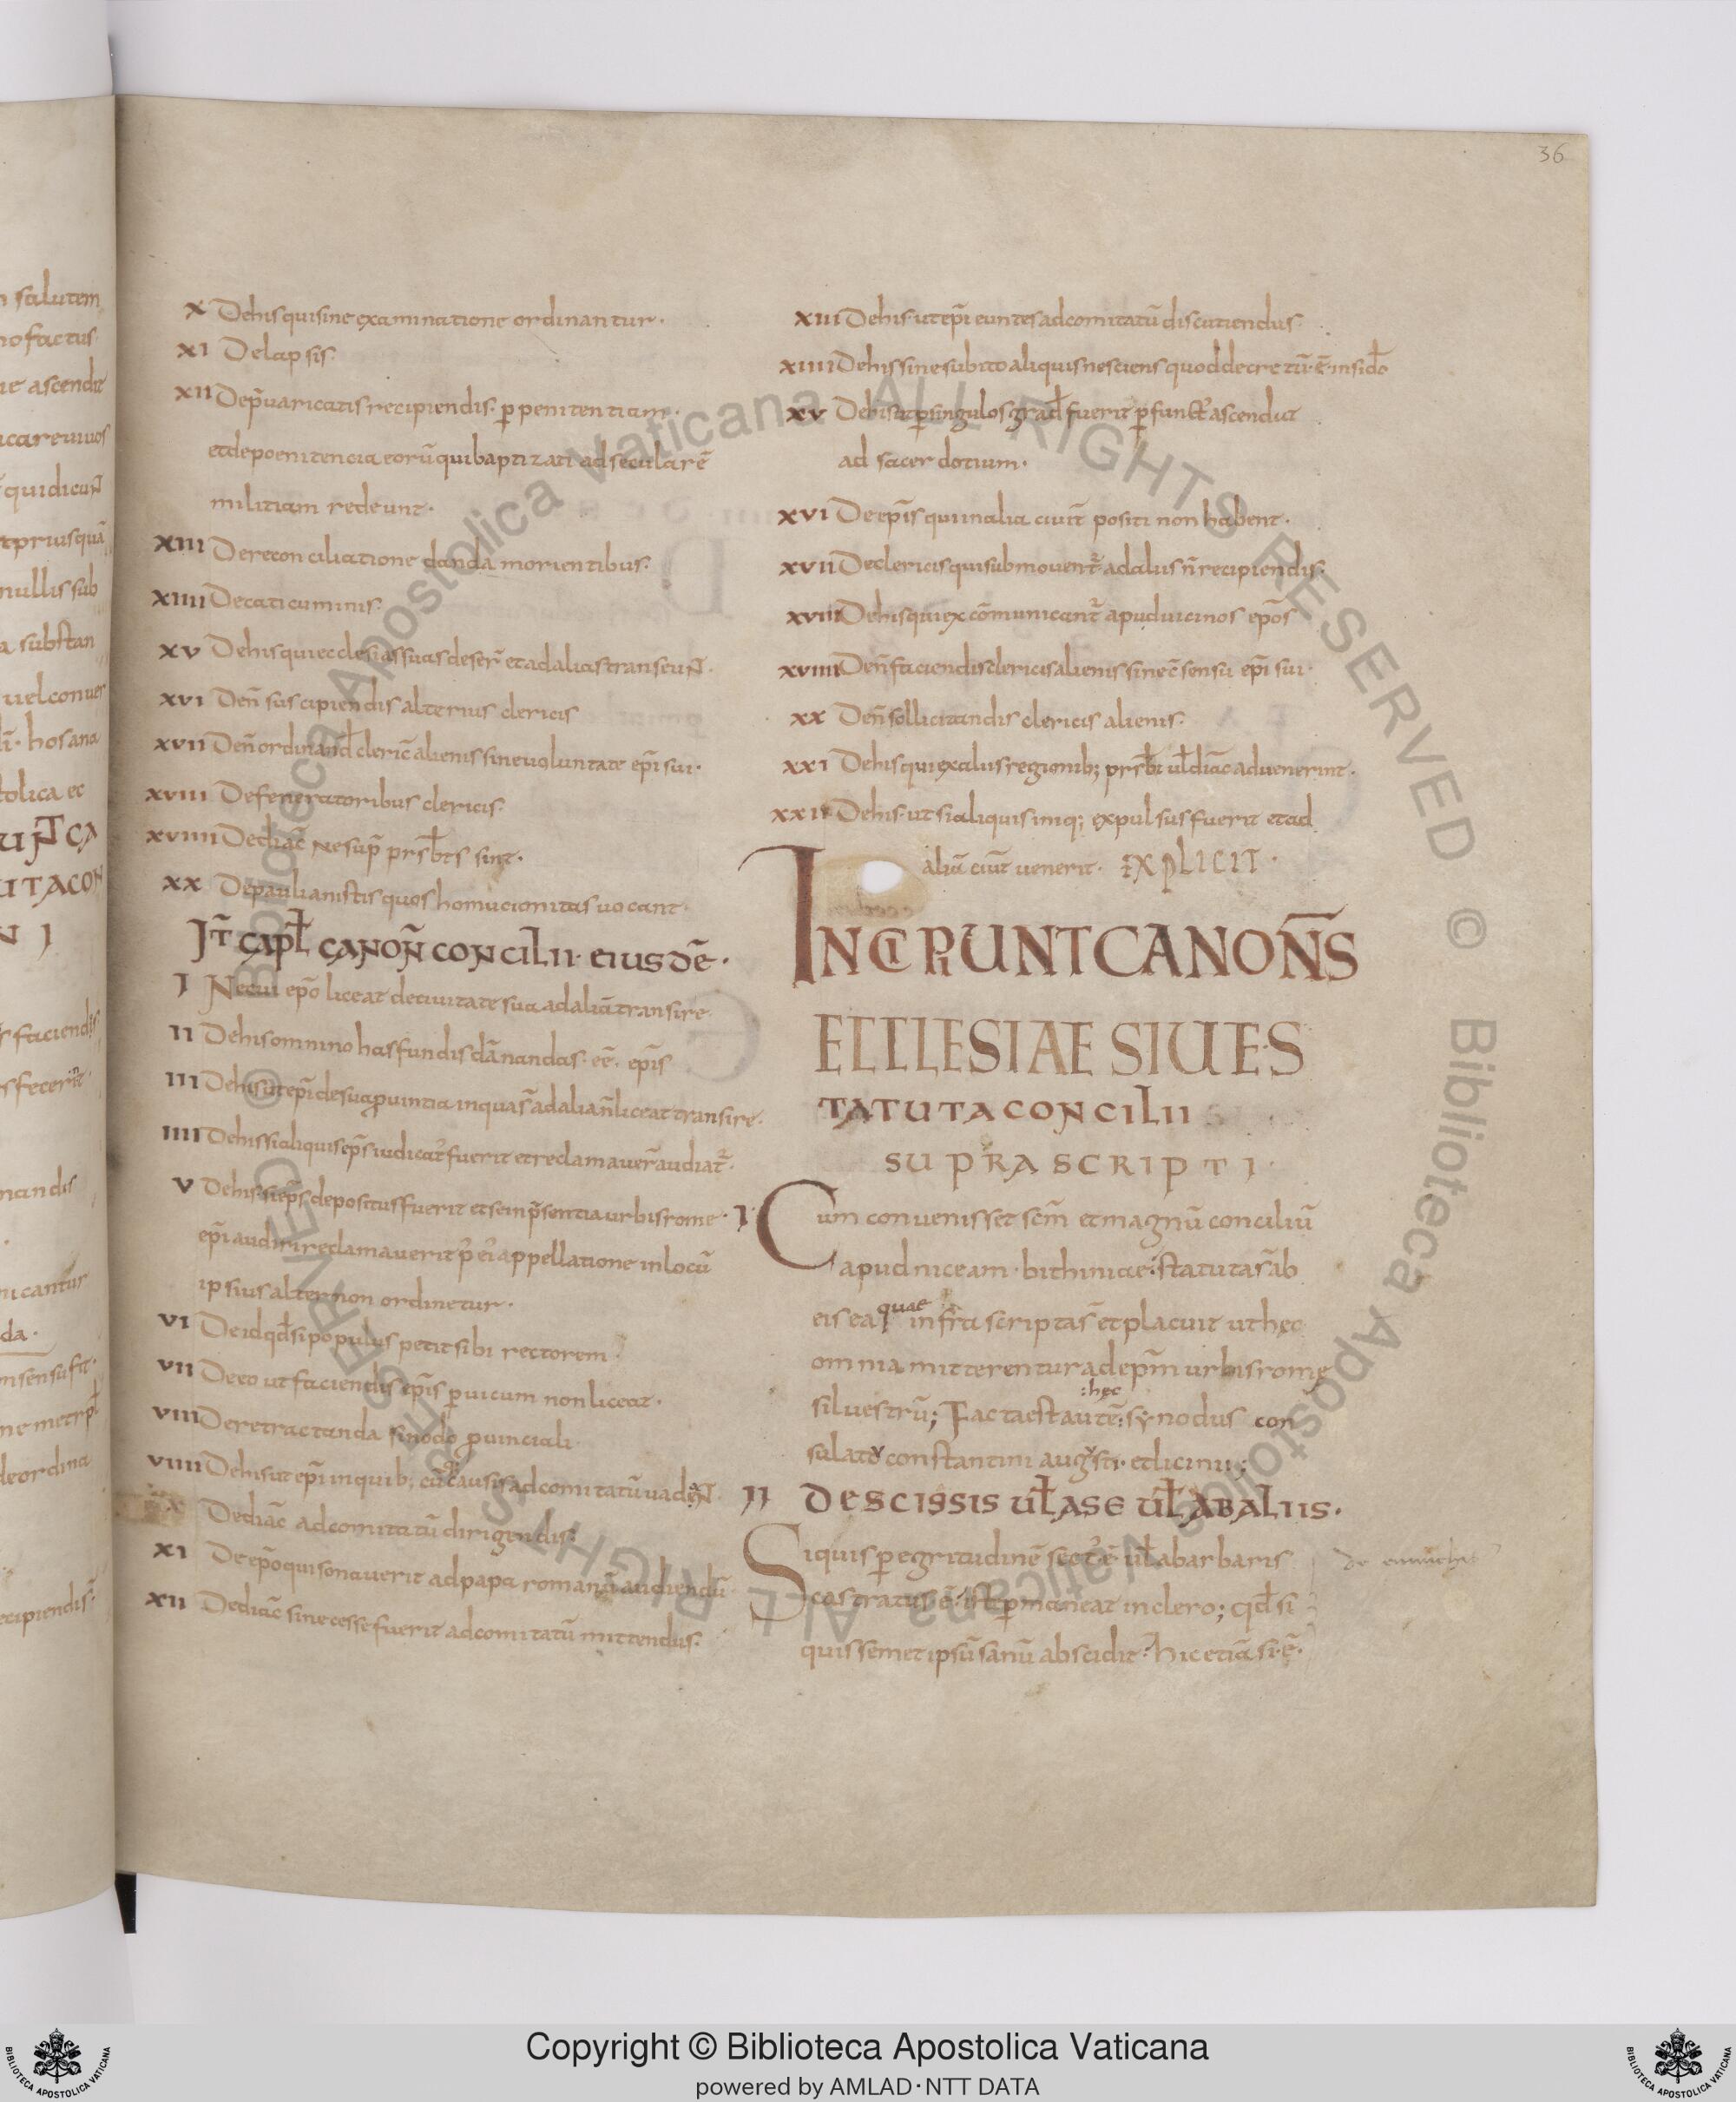 36
X De his qui sine examinatione ordinantur·
XI De lapsis·
XII De p̄uaricatis recipiendis· ꝑ penitentiam·
et de poenitencia eorū qui baptizati ad secularē
militiam redeunt·
XIII De reconciliatione danda morientibus·
XIIII De caticuminis·
XV De his qui ecclesias suas deser̄ et ad alias transeuN̄·
XVI De n̄ suscipiendis alterius clericis
XVII De n̄ ordinand̄ cleric̄ alienis sine uoluntate ep̄i sui·
XVIII De feneratoribus clericis·
XVIIII De diac̄ ne sup̄ prsb̄ts sint·
XX De paulianistis quos homucionitas uocant·
IT̄ CAPŁ CANON̄ CONCILII· EIUSDĒ·
I Ne cui ep̄o liceat de ciuitate sua ad aliā transire
II De his omnino has fundis dānandas· eē· ep̄is
III De his ut ep̄i de sua ꝓuintia in qua s̄ ad alia n̄ liceat transire·
IIII De his si aliquis ep̄s iudicat᾽ fuerit et reclamauer̄ audiat᷒·
V De his si ep̄s depositus fuerit et se in p̄sentia urbis rome·
ep̄i audiri reclamauerit p᾽ ei᾽ appellatione in locū
ipsius alter non ordinetur·
VI De id qd̄ si populus petit sibi rectorem·
VII De eo ut faciendis ep̄is ꝑ uicum non liceat·
VIII De retractanda sinodo ꝓuinciali
VIIII De his ut ep̄i in quib; cū causis ad comitatū uadeN̄
X De diac̄ ad comitatū dirigendis·
XI De ep̄o qui sonauerit ad papa romanū audiendū
XII De diac̄ sine cesse fuerit ad comitatū mittendus·
XIII De his· ut ep̄i euntes ad comitatū discutiendus·
XIIII De his sine subito aliquis nesciens quod decretū· ē· in sido
XV De his ut ꝑ singulos grad̄ fuerit ꝑfunct᾽ ascendat
ad sacerdotium·
XVI De ep̄is qui in alia ciuit̄ positi non habent·
XVII De clericis qui submouent᷒ ad alus n̄ recipiendis·
XVIII De his qui excōmunicant᷒ apud uicinos ep̄os
XVIIII De n̄ faciendis clericis alienis sine c̄sensu ep̄i sui·
XX De n̄ sollicitandis clericis alienis·
XXI De his qui ex alus regionib; prsb̄i uł diac̄ aduenerint·
XXII De his· ut si aliquis iniq; expulsus fuerit et ad
aliū ciuit̄ uenerit· EXPLICIT·
INCIPIUNT CANON̄S
ECCLESIAE SIUE S
TATUTA CONCILII
SUPRA SCRIPTI·
I· Cum conuenisset sc̄m et magnū conciliū
apud niceam· bithiniae· statuta s̄ ab
quae
eis ea infra scripta s̄ et placuit ut hec
omnia mitterentur ad ep̄m urbis rome
:hęc
siluestrū; Facta est autē: synodus con
sulato constantini augusti· et licinii;
II DE SCISSIS UŁ A SE UŁ AB ALIIS·
Si quis ꝑ egritudinē sect᾽ ē uł a barbaris
de eunuchis
castratus· ē· iste ꝑmaneat in clero; qd̄ si
quis semet ipsū sanū abscidit· hic etiā si· ē·
Copyright © Biblioteca Apostolica Vaticana
powered by AMLAD·NTT DATA